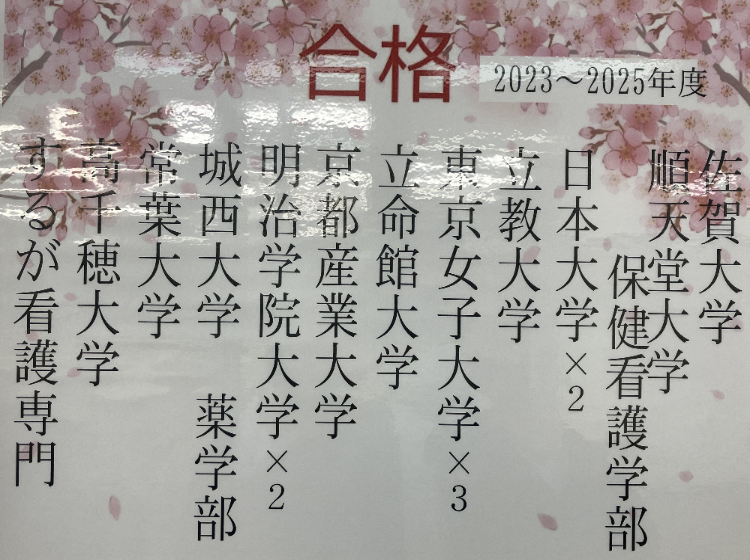 合格
2023～2025年度
佐賀大学
順天堂大学
保健看護学部
日本大学×2
立教大学
東京女子大学×3
立命館大学
京都産業大学
明治学院大学×2
城西大学 薬学部
常葉大学
高千穂大学
するが看護専門